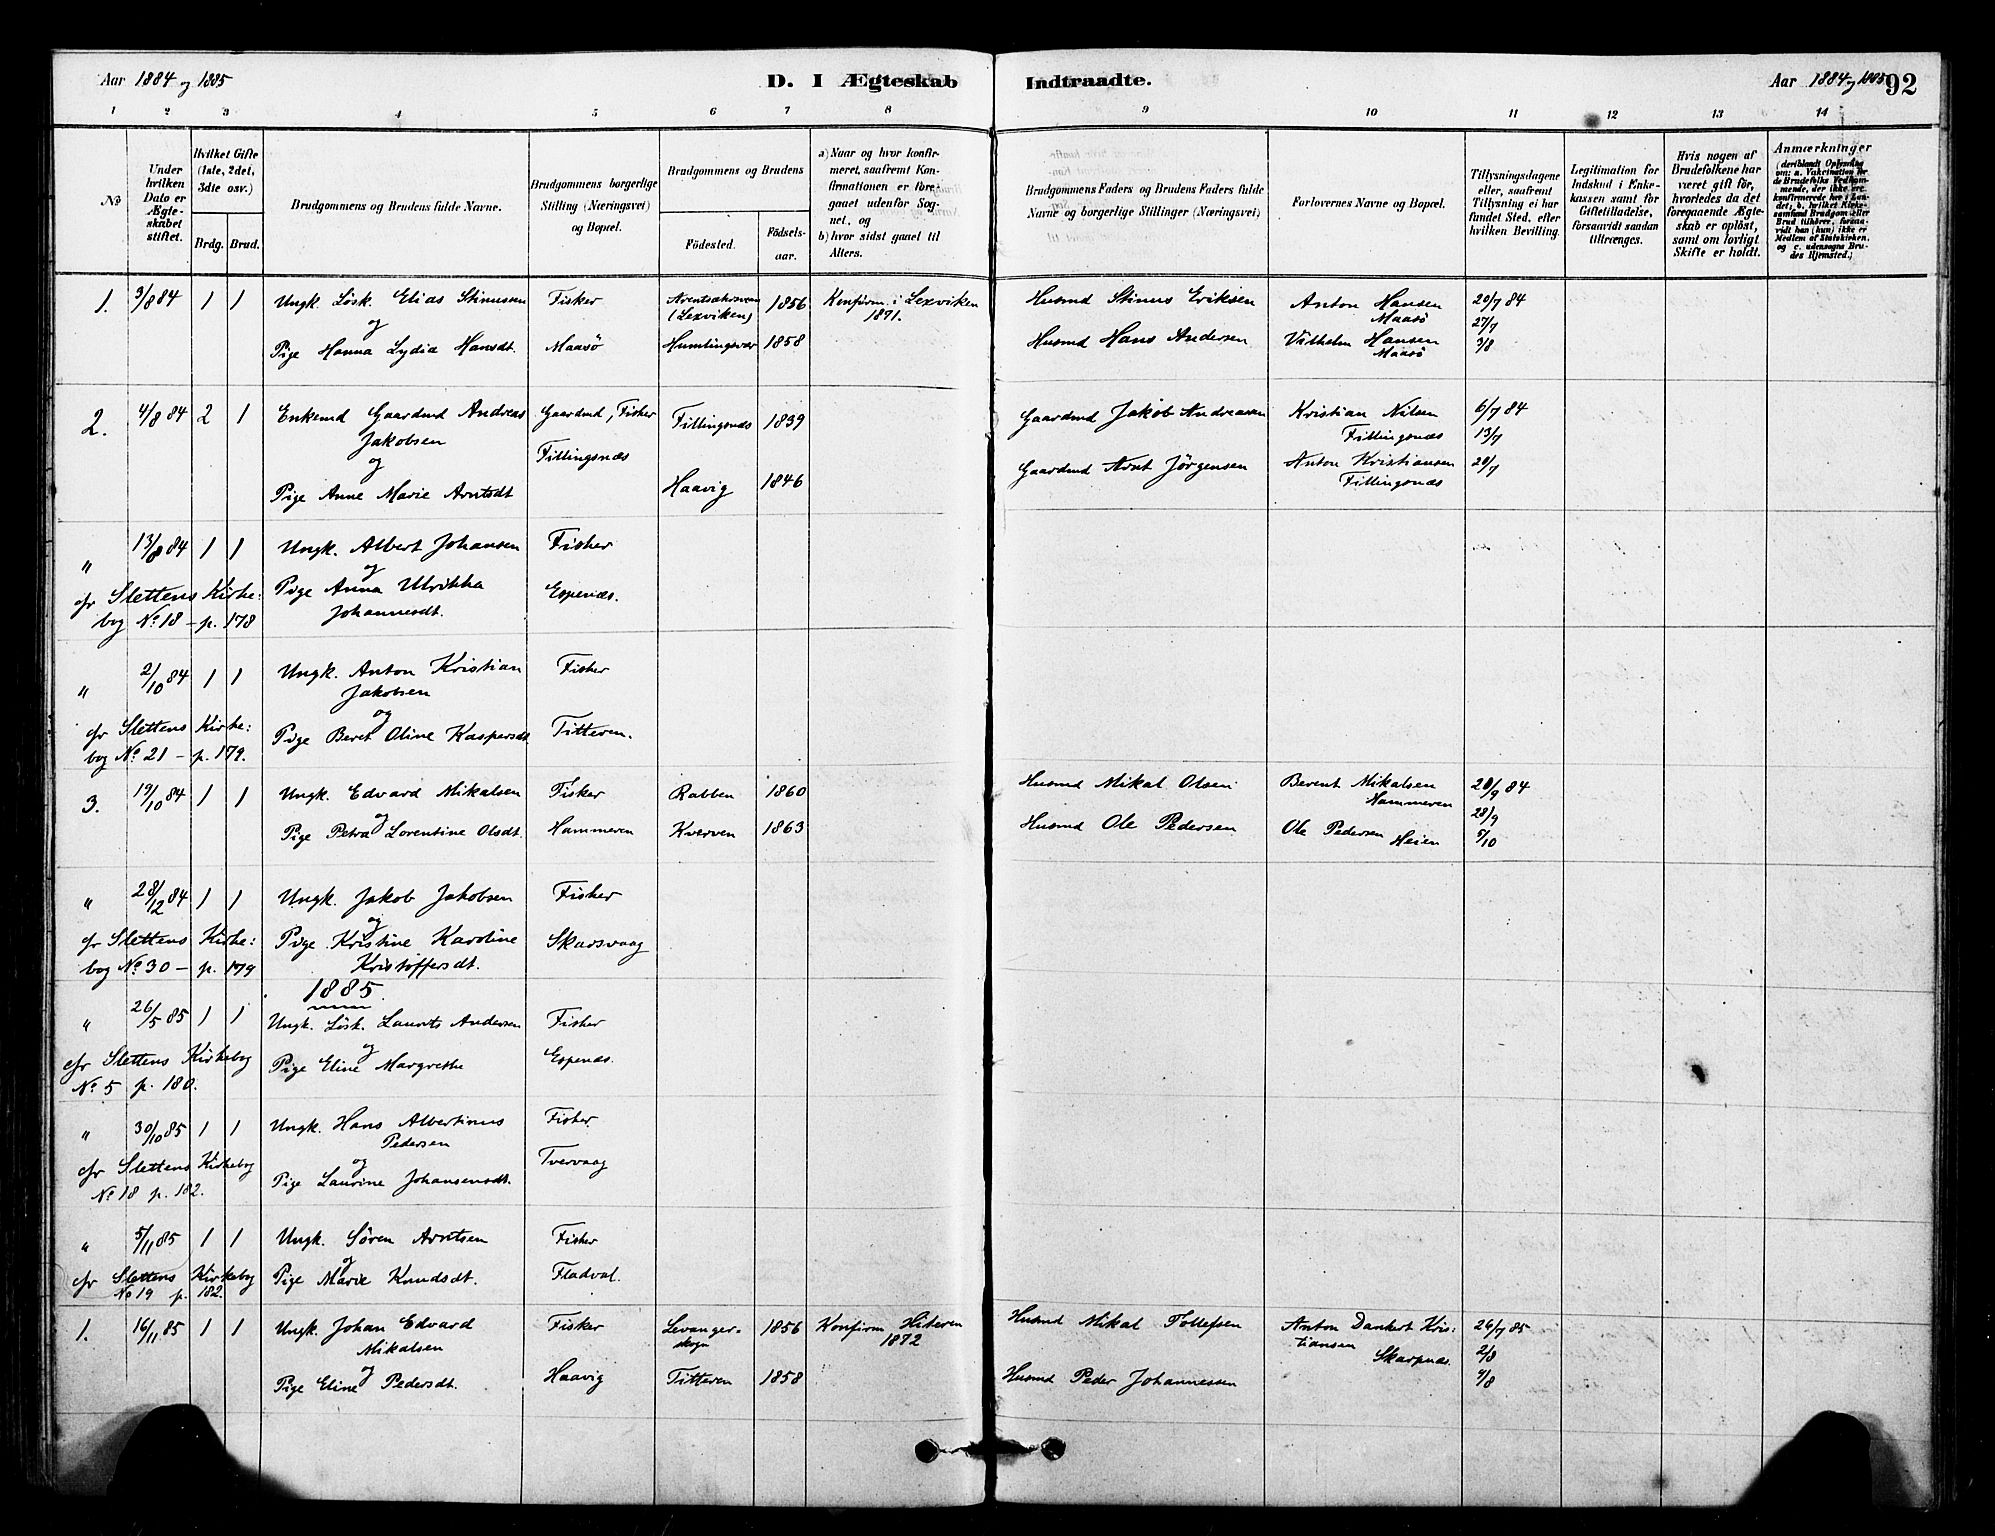 Aar 1884 og 1885
D. I Ægteskab Indtraadte.
Aar 1884 og 1885
92
1 2 3 4 5 6 7 8 9 10 11 12 13 14
No
Under hvilken Dato er Ægteskabet stiftet.
Hvilket Gifte (1ste, 2det, 3die osv.)
Brdg. Brud.
Brudgommens og Brudens fulde Navne.
Brudgommens borgerlige Stilling (Næringsvei) og Bopæl.
Brudgommens og Brudens
Födested. Födselsaar.
a) Naar og hvor konfirmeret, saafremt Konfirmationen er foregaaet udenfor Sognet, og
b) hvor sidst gaaet til Alters.
Brudgommens Faders og Brudens Faders fulde Navne og borgerlige Stillinger (Næringsvei)
Forlovernes Navne og Bopæl.
Tillysningsdagene eller, saafremt Tillysning ei har fundet Sted, efter hvilken Bevilling
Legitimation for Indskud i Enkekassen samt for Giftetilladelse, forsaavidt saadan tiltrænges.
Hvis nogen af Brudefolkene har været gift för, hvorledes da det foregaaende Ægteskab er oplöst, samt om lovligt Skifte er holdt.
Anmærkninger
1. 3/8 84 1 1 Ungk. Løsk. Elias Stinussen Fisker (Lexviken) 1856 Konfirm. i Lexviken 1871. Husmd Stinus Eriksen Anton Hansen Maasø 20/7 84
og 27/7
Pige Hanna Lydia Hansdt. Maasø Humlingsvær 1858 Husmd Hans Andersen Vilhelm Hansen Maasø 3/8
2. 4/8 84 2 1 Enkemd Gaardmd Andreas Jakobsen Gaardmd, Fisker Fillingsnæs 1839 Gaardmd Jakob Andreasen Kristian Nilsen Fillingsnæs 6/7 84
og Fillingsnæs 13/7
Pige Anne Marie Arntsdt Haavig 1846 Gaardmd Arnt Jörgensen Anton Kristiansen Fillingsnæs 20/7
" 13/8 84 1 1 Ungk. Albert Johansen Fisker
og
cfr Slettens Kirke: Pige Anna Ulrikka Espenæs.
bog No 18 - p. 178 Johannesdt.
" 2/10 84 1 1 Ungk. Anton Kristian Fisker
Jakobsen
og
cfr Slettens Kirke: Pige Beret Oline Kaspersdt Titteren.
bog No 21 - p. 179.
3. 19/10 84 1 1 Ungk. Edvard Mikalsen Fisker Rabben 1860 Husmd Mikal Olsen Berent Mikalsen Hammeren 20/9 84
og 28/9
Pige Petra Lorentine Olsdt. Hammeren Kverven 1863 Husmd Ole Pedersen Ole Pedersen Heien 5/10
" 28/12 84 1 1 Ungk. Jakob Jakobsen Fisker
og
cfr Slettens Kirke: Pige Kristine Karoline Skarsvaag
bog No 30 - p. 179 Kristoffersdt.
1885.
" 26/5 85 1 1 Ungk. Løsk. Laurits Andersen Fisker
og
cfr Slettens Kirkebog Pige Eline Margrethe Espenæs.
No 5 p. 180.
" 30/10 85 1 1 Ungk. Hans Albertinus Fisker
Pedersen
og Tvervaag
cfr Slettens Kirkebog Pige Laurine Johansensdt.
No 18 p. 182.
" 5/11 85 1 1 Ungk. Søren Arntsen Fisker
og
cfr Slettens Kirkebog Pige Marie Knudsdt. Fladval.
No 19 p. 182.
1. 16/11 85 1 1 Ungk. Johan Edvard Fisker Levanger- 1856 Konfirm Hiteren Husmd Mikal Tollefsen Anton Dankert Kris: 26/7 85
Mikalsen skogn 1872 tiansen Skarpnæs. 2/8
og
Pige Eline Pedersdt. Haavig Titteren 1858 Husmd Peder Johannessen 9/8